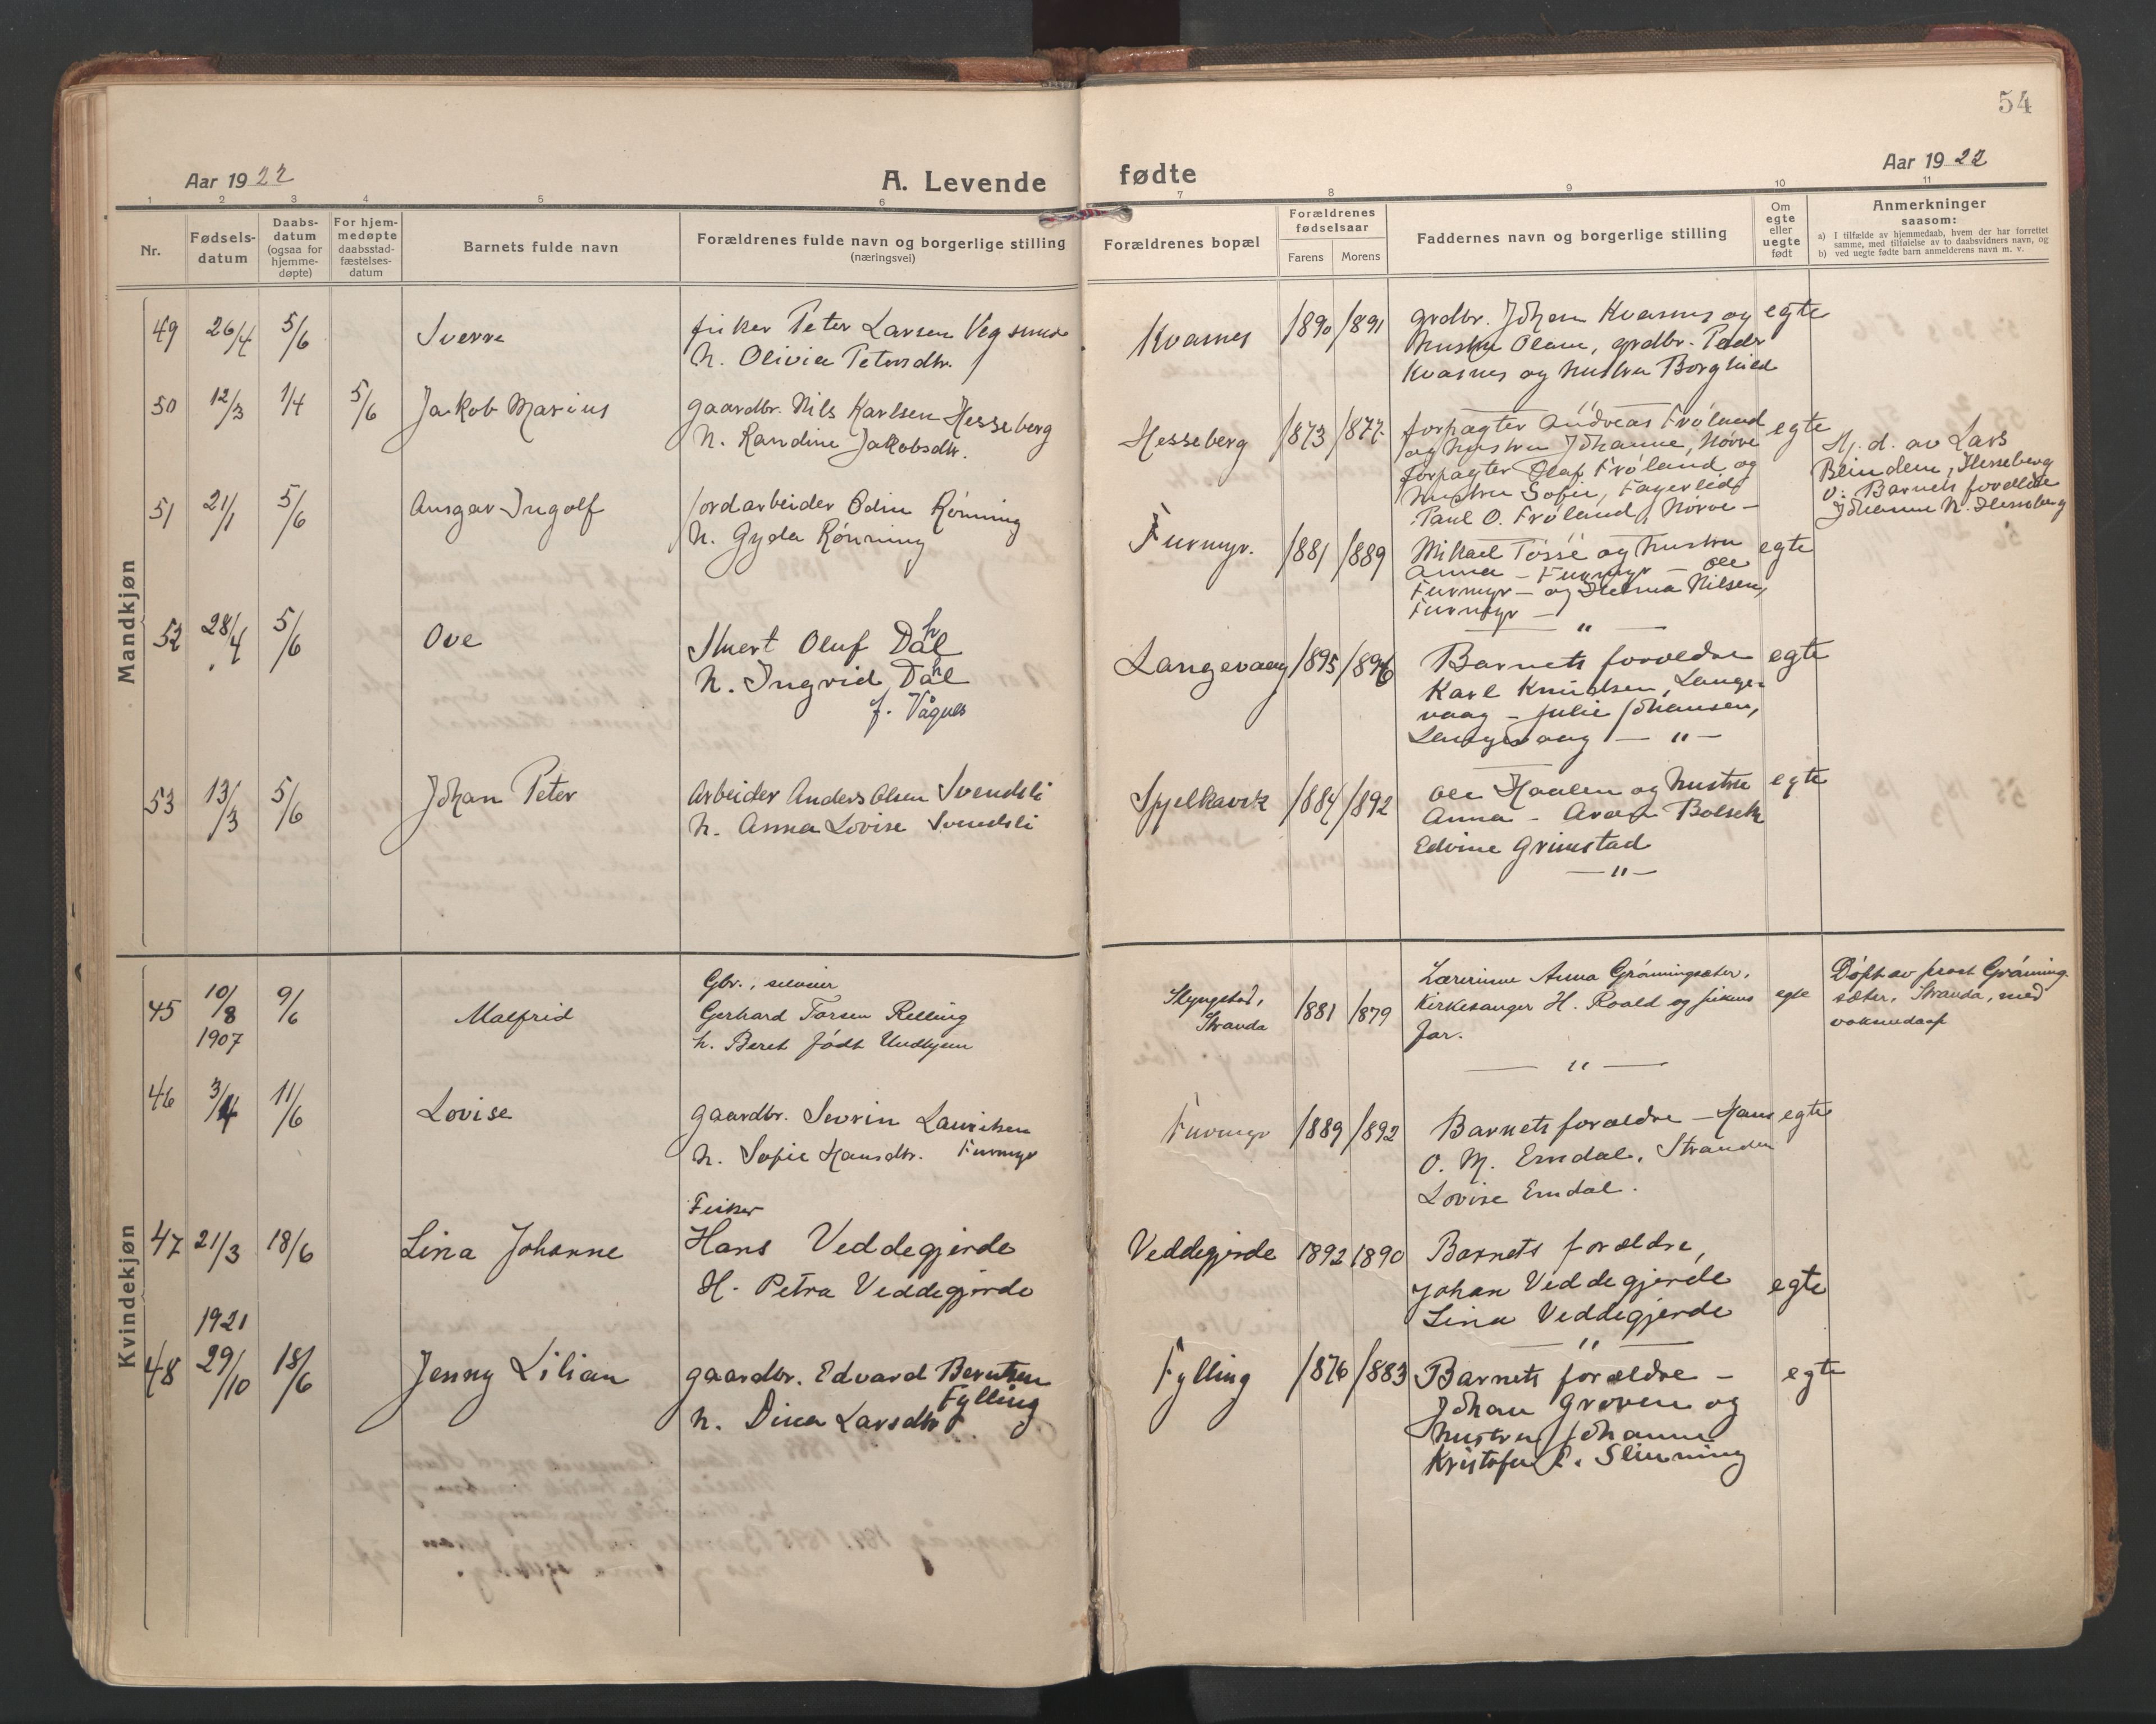 54
Aar 1922
A. Levende
fødte
Aar 1922
1 2 3 4 5 6 7 8 9 10 11
Nr.
Fødsels-
datum
Daabs-
datum
(ogsaa for
hjemme-
døpte)
For hjem-
medøpte
daabsstad-
fæstelses-
datum
Barnets fulde navn
Forældrenes fulde navn og borgerlige stilling
(næringsvei)
Forældrenes bopæl
Forældrenes
fødselsaar
Farens Morens
Faddernes navn og borgerlige stilling
Om
egte
eller
uegte
født
Anmerkninger
saasom:
a) I tilfælde av hjemmedaab, hvem der har forrettet
samme, med tilføielse av to daabsvidners navn, og
b) ved uegte fødte barn anmelderens navn m. v.
Mandkjøn
49 26/4 5/6 Sverre
fisker Peter Larsen Vegsund
h. Olivia Petersdtr.
Kvasnes 1890 1891
grdbr. Johan Kvasnes og
hustru Olave, grdbr. Peder
Kvasnes og hustru Borghild
egte
50 12/3 1/4 5/6 Jakob Marius
gaardbr. Nils Karlsen Hesseberg
h. Randine Jakobsdtr.
Hesseberg 1873 1877
forpagter Andreas Frøland
og hustru Johanne, Nørve
forpagter Olaf Frøland og
hustru Sofie, Fagerlid
Paul O. Frøland, Nørve –
egte
Hj. d. av Lars
Blindem, Hesseberg
v: Barnets forældre
Johanne N. Hesseberg
51 21/1 5/6 Ansgar Ingolf
Jordarbeider Odin Rønning
h. Gyda Rønning
Furmyr. 1881 1889
Mikael Tøsse og hustru
Anna – Furmyr – Ole
Furmyr – og Helena Nilsen,
Furmyr –
egte
– " –
52 28/4 5/6 Ove
Sivert Oluf Dahl
h. Ingrid Dahl
f. Vågnes
Langevaag 1895 1896
Barnets forældre
Karl Knudsen, Lange-
vaag – Julie Johansen,
Langevaag – " –
egte
53 13/3 5/6 Johan Peter
Arbeider Anders Olsen Svendsli
h. Anna Lovise Svendsli
Spjelkavik 1884 1892
Ole Haalen og hustru
Anna – Bolseth
Edvine Grimstad
– " –
egte
Kvindekjøn
45 10/8 1907 9/6 Malfrid
Gbr.,
Gerhard Larsen Relling
h. Beret født Undhjem
Slyngstad,
Stranda
1881 1879
Lærerinne Anna Grønningsæter,
Kirkesanger H. Roald og pikens
far.
– " –
egte
Døpt av prost Grønning-
sæter, Stranda, med
voksendaap
46 3/4 11/6 Lovise
gaardbr. Sevrin Lauritsen
h. Sofie Hansdtr. Furmyr
Furmyr 1889 1892
Barnets forældre – Hans
O. M. Emdal, Stranden
Lovise Emdal.
egte
47 21/3 18/6 Lina Johanne
Fisker
Hans Veddegjerde
H. Petra Veddegjerde
Veddegjerde 1892 1890
Barnets forældre,
Johan Veddegjerde
Lina Veddegjerde
egte
– " –
1921
48 29/10 18/6 Jenny Lilian
gaardbr. Edvard Berntsen
Fylling
h. Dina Larsdtr.
Fylling 1876 1883
Barnets forældre –
Johan Groven og
hustru Johanne
Kristofer P. Slinning
egte